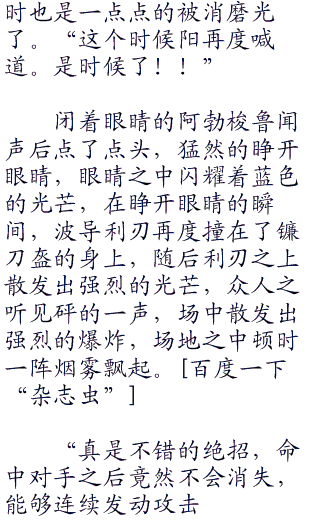 时也是一点点的被消磨光
了。“这个时候阳再度喊
道。是时候了！！”
闭着眼睛的阿勃梭鲁闻
声后点了点头，猛然的睁开
眼睛，眼睛之中闪耀着蓝色
的光芒，在睁开眼睛的瞬
间，波导利刃再度撞在了镰
刀盔的身上，随后利刃之上
散发出强烈的光芒，众人之
听见砰的一声，场中散发出
强烈的爆炸，场地之中顿时
一阵烟雾飘起。[百度一下
“杂志虫”]
“真是不错的绝招，命
中对手之后竟然不会消失，
能够连续发动攻击